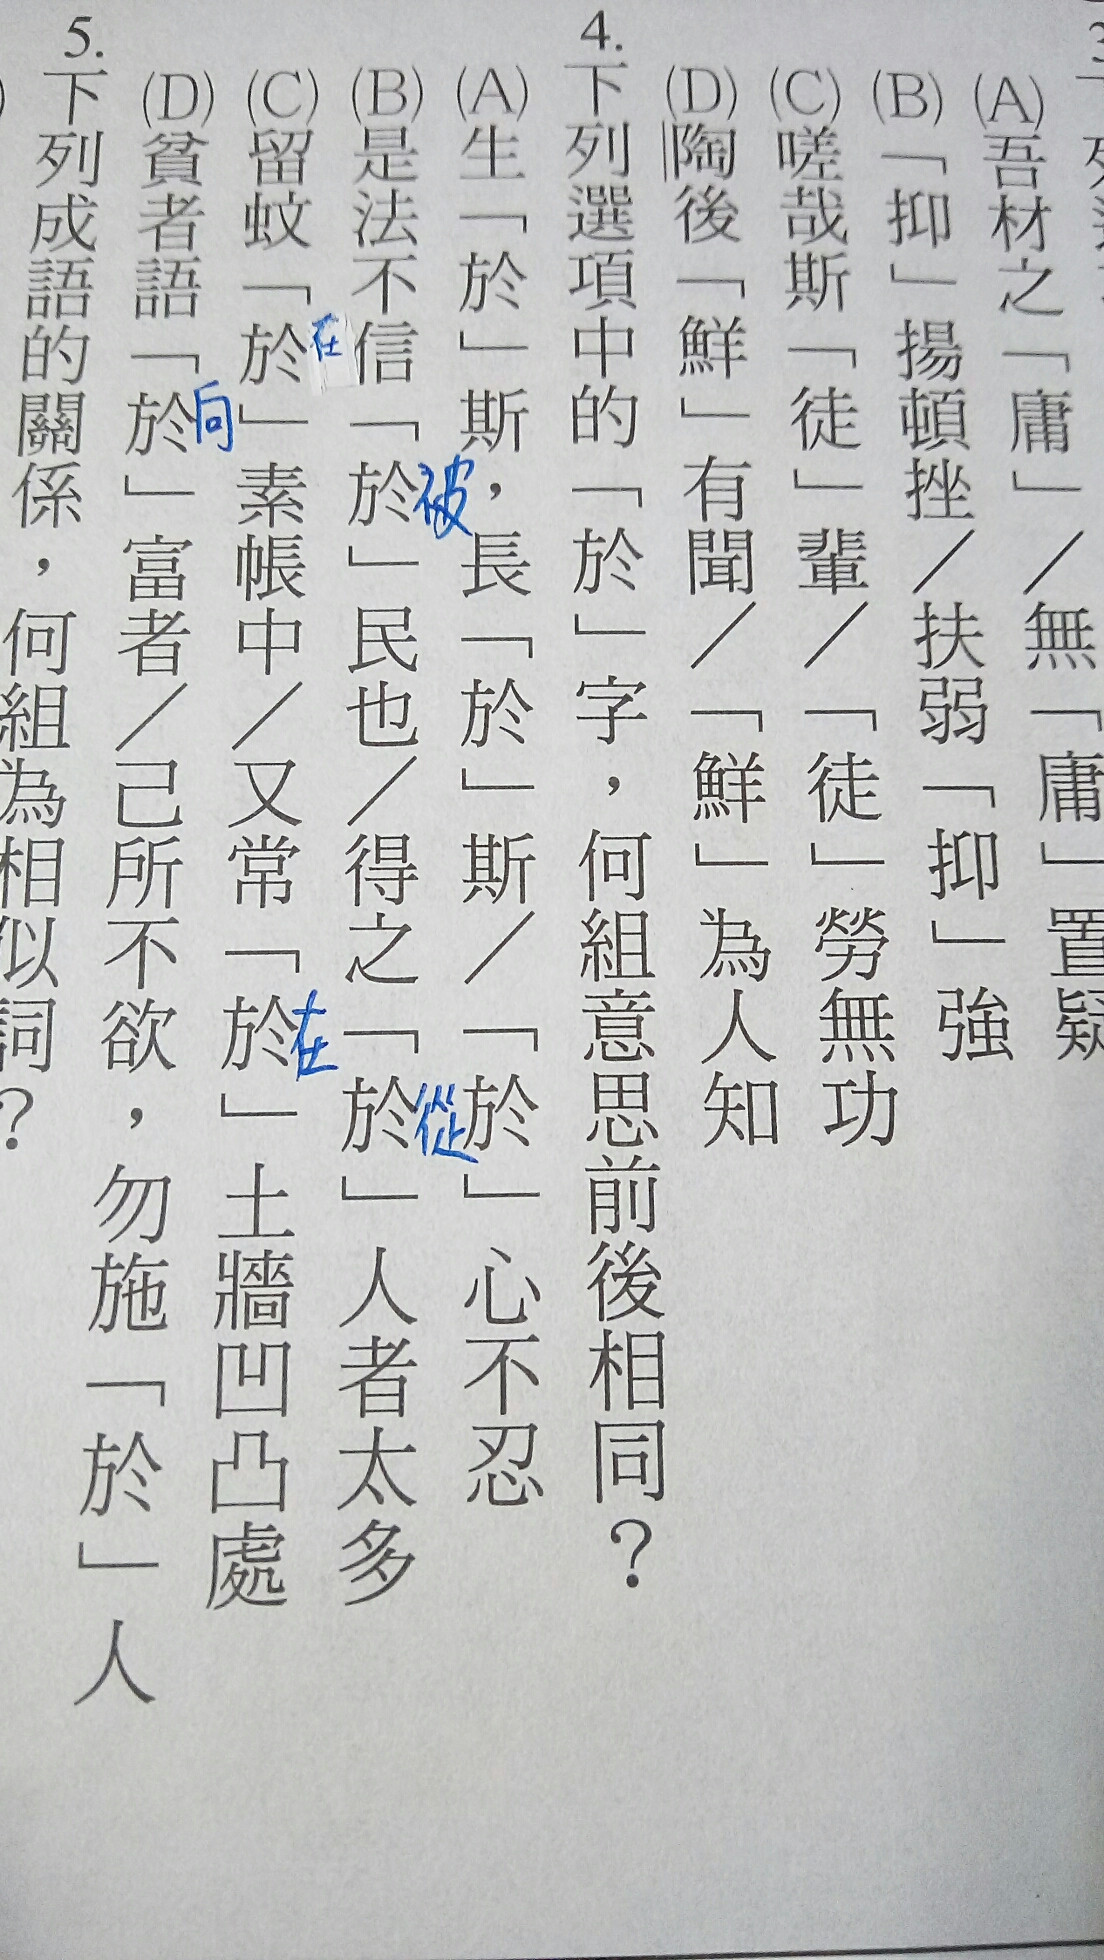 (A)吾材之「庸」／無「庸」置疑
(B)「抑」揚頓挫／扶弱「抑」強
(C)嗟哉斯「徒」輩／「徒」勞無功
(D)陶後「鮮」有聞／「鮮」為人知
4.下列選項中的「於」字，何組意思前後相同？
(A)生「於」斯，長「於」斯／「於」心不忍
被
從
(B)是法不信「於」民也／得之「於」人者太多
在
在
(C)留蚊「於」素帳中／又常「於」土牆凹凸處
向
(D)貧者語「於」富者／己所不欲，勿施「於」人
5.下列成語的關係，何組為相似詞？